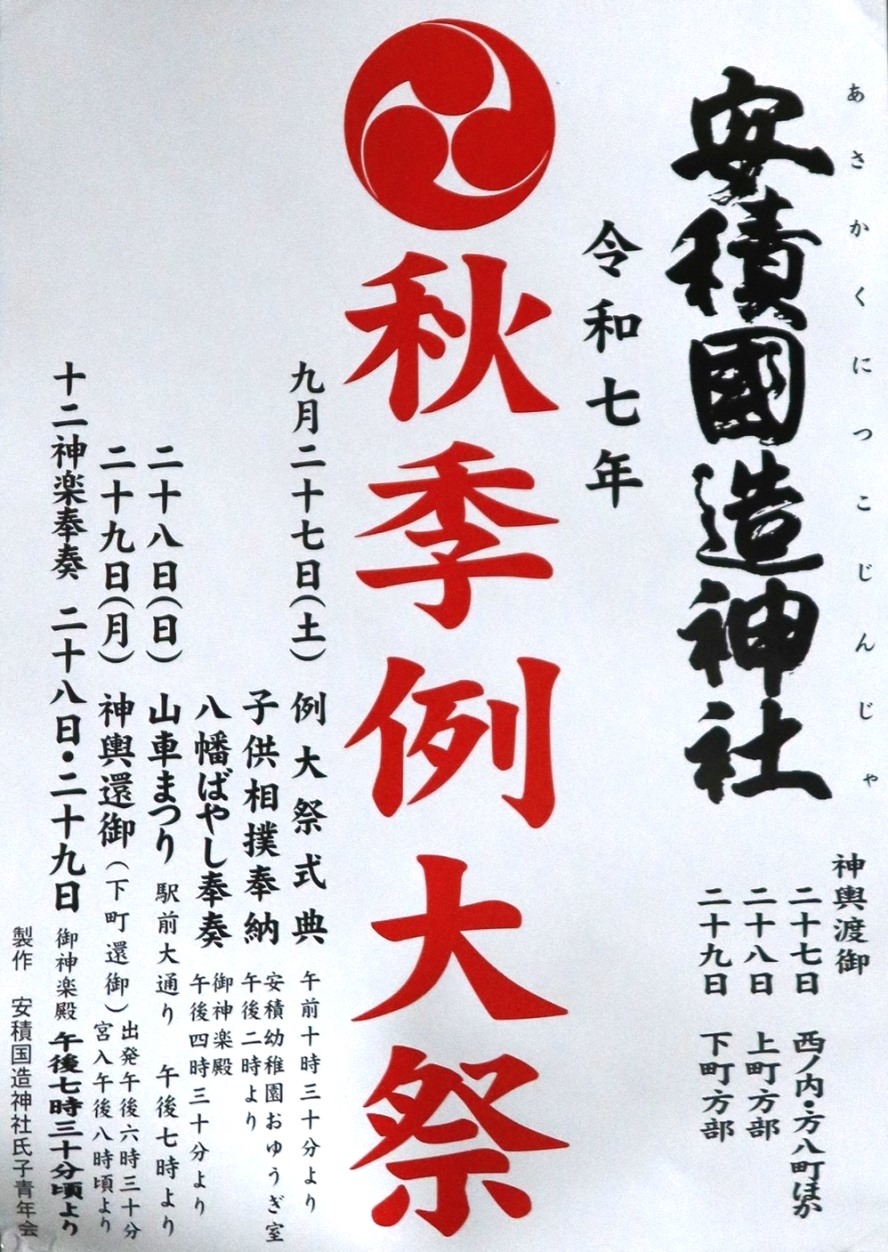 あさかくにつこじんじゃ
安積國造神社
神輿渡御
二十七日 西ノ内・方八町ほか
二十八日 上町方部
二十九日 下町方部
令和七年
秋季例大祭
九月二十七日(土) 例大祭式典 午前十時三十分より
子供相撲奉納 安積幼稚園おゆうぎ室
午後二時より
八幡ばやし奉奏 御神楽殿
午後四時三十分より
二十八日(日) 山車まつり 駅前大通り 午後七時より
二十九日(月) 神輿還御(下町還御) 出発午後六時三十分
宮入午後八時頃より
十二神楽奉奏 二十八日・二十九日 御神楽殿 午後七時三十分頃より
製作 安積国造神社氏子青年会